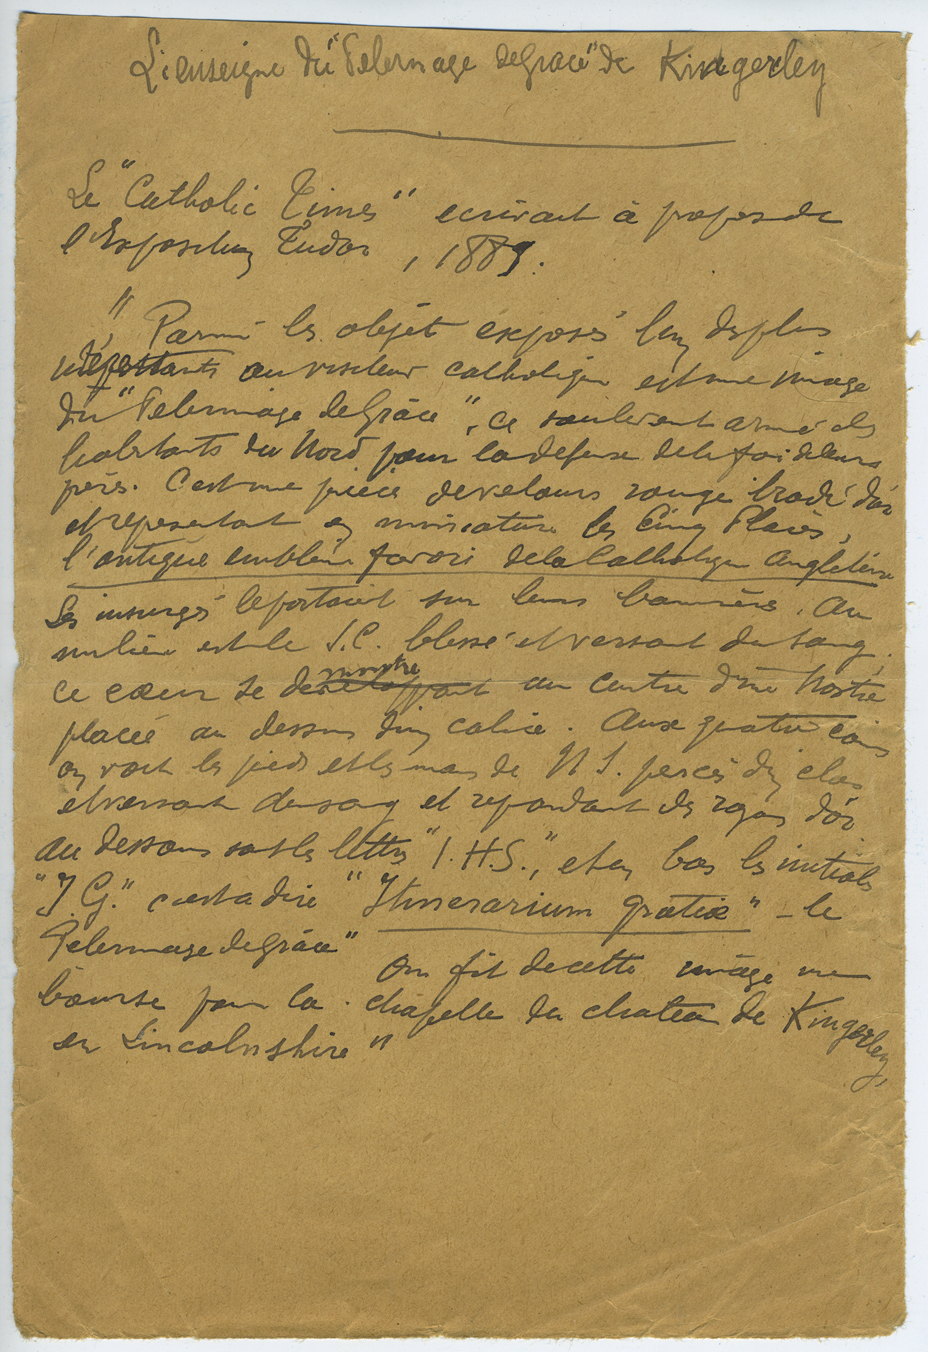 L'enseigne du "Pelerinage de Grace" de Kingerley
Le "Catholic Times" ecrivait à propos de
l'Exposition Tudor, 1889.
" Parmi les objêt exposés l'un des plus
au visiteur catholique est une image
du "Pelerinage de Grâce", ce soulevent armé des
habitants du Nord pour la defense de la foi de leurs
pères. C'est une pièce de velours rouge brodé d'or
et representant en miniature les Cinq Plaies,
l'antique emblème favori de la Catholique Angleterre
Les insurgés le portaient sur leurs bannières. Au
milieu est le S.C. blessé et versant du sang,
ce cœur se montre au centre d'une Hostie
placée au dessus d'un calice. Aux quatre coins
on voit les pieds et les mains de N S. percés d'un clou
et versant du sang et repandant des rayons d'or
au dessous sont les lettres "I.H.S.", et en bas les initials
"I.G." c'est a dire "Itinerarium gratiæ" - le
Pelerinage de Grâce"
On fit de cette image une
bourse pour la chapelle du chateau de Kingerley,
en Lincolnshire"